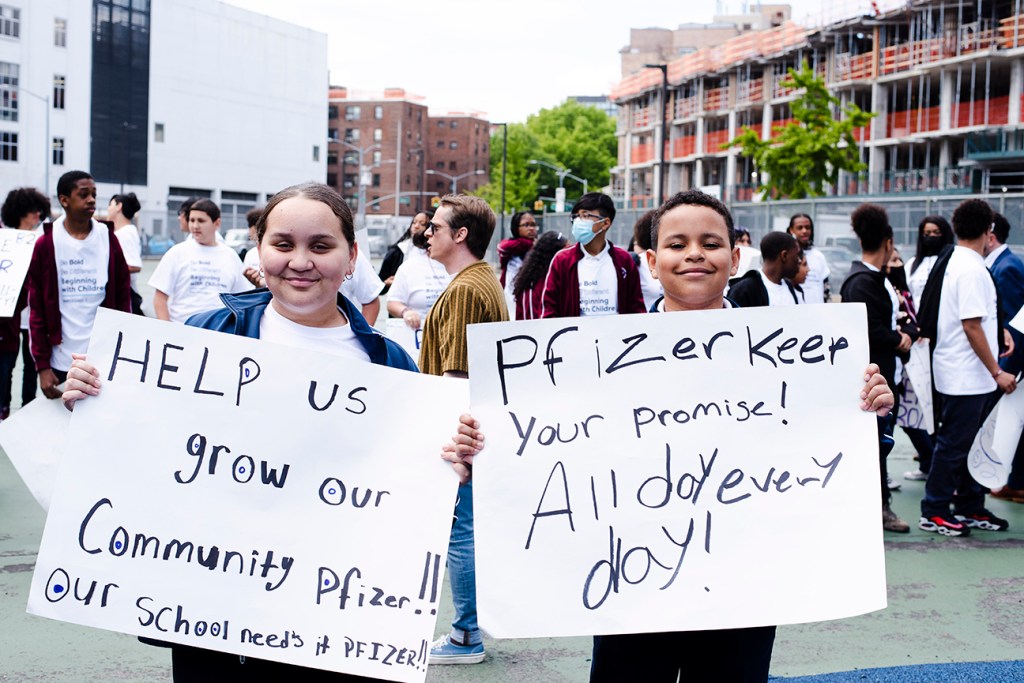 HELP us
grow our
Community Pfizer!!
Our School need's it PFIZER!!
Pfizer Keep
Your promise!
All day every
day!
Be Bold
Be Different
Beginning
with Children
Beginning
with Children
Beginning